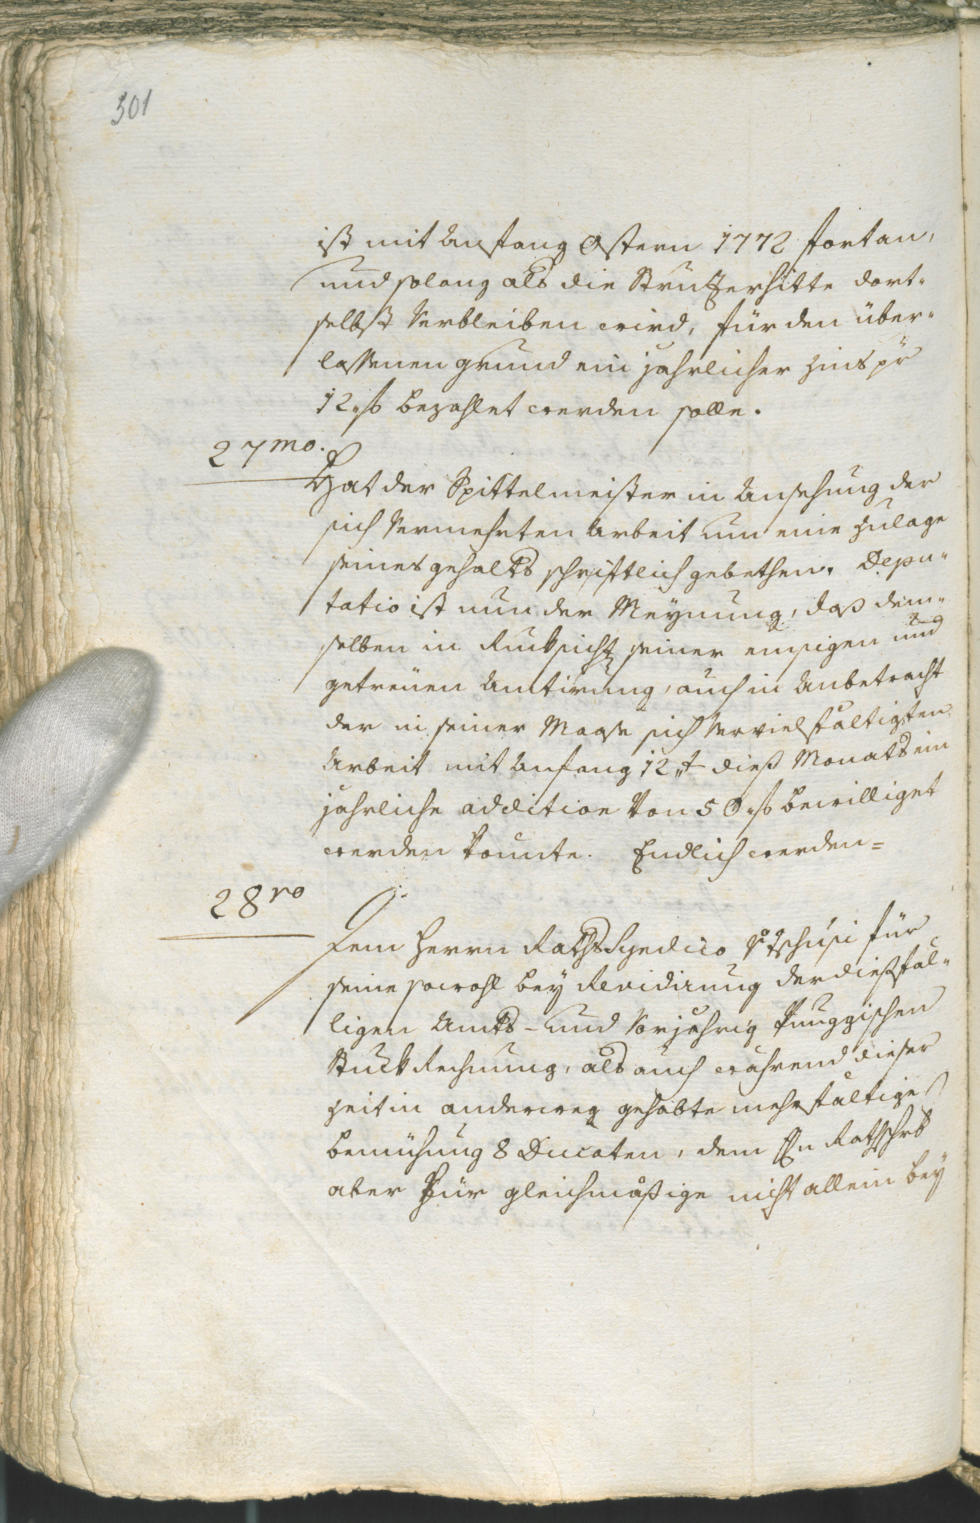 301
ist mit Anfang Ostern 1772 fortan,
und solang als die Krutzerhitte dort-
selbst Verbleiben wird, für den über-
lassenen grund ein jahrlicher Zins pr
12 f bezahlet werden solle.
27mo.
Hat der Spittelmeister in Ansehung der
sich Vermehrten Arbeit um eine Zulage
seines gehalts schriftlich gebethen. Depu-
tatio ist nun der Meynung, daß dem-
selben in Ruksicht seiner emsigen und
getreuen Amtirung, auch in Anbetracht
der in seiner Maase sich Vervielfältigten
Arbeit mit Anfang 12t dieß Monats ein
jahrliche addition Von 50 f bewilliget
werden konnte. Endlich werden=
28vo
Dem Herrn Raths Syndico für
seine sowohl bey Revidirung der dießfäl-
ligen Amts- und Vorjährig
Stuck Rechnung, als auch während dieser
Zeit in anderweg gehabte mehrfältige
bemühung 8 Ducaten, dem Hn Rathschrb
aber für gleichmäßige nicht allein bey